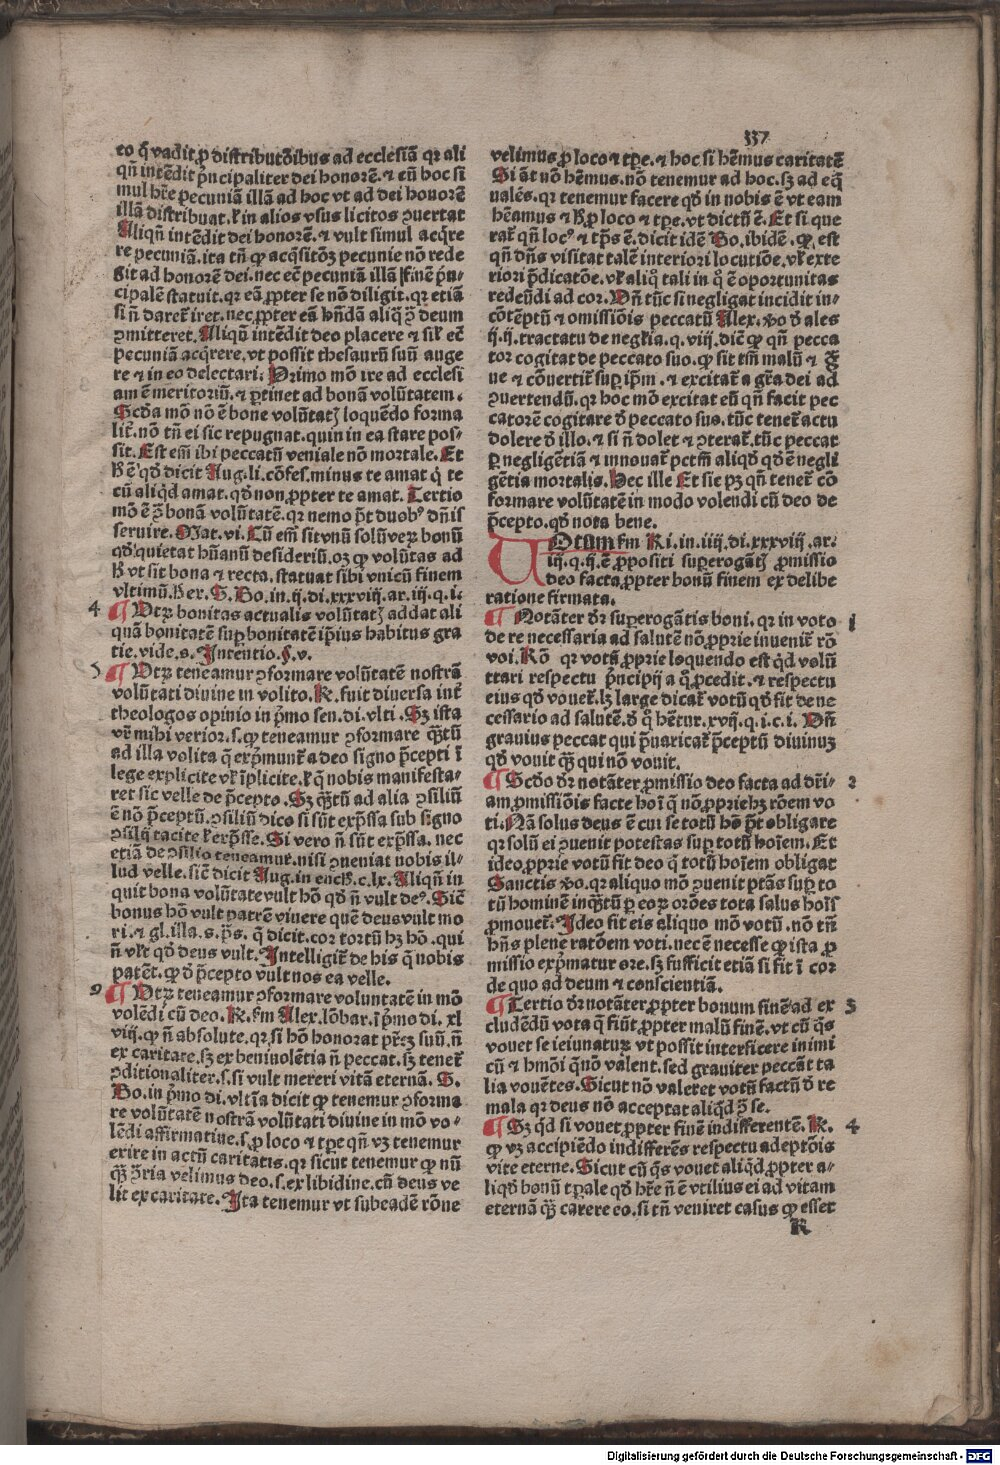 337
to q̄ vadit ꝓ distributōibus ad ecclesiā qꝛ ali
qñ intēdit p̄ncipaliter dei honorē. ⁊ cū hoc si
mul hr̄e pecuniā illā ad hoc vt ad dei honorē
illā distribuat. ł in alios vsus licitos ꝯuertat
Aliqñ intēdit dei honorē. ⁊ vult simul acq̄re
re pecuniā. ita tñ ꝙ acq̄sitōꝫ pecunie nō rede
git ad honorē dei. nec ec̄ pecuniā illā finē p̄n⸗
cipalē statuit. qꝛ eā ꝓpter se nō diligit. qꝛ etiā
si ñ daret̄ iret. nec ꝓpter eā hñdā aliq̄ ꝯ deum
ꝯmitteret. Aliqñ intēdit deo placere ⁊ sil̄ ec̄
pecuniā acq̄rere. vt possit thesaurū suū auge
re ⁊ in eo delectari. Primo mō ire ad ecclesi
am ē meritoriū. ⁊ ꝑtinet ad bonā volūtatem.
Scd̄a mō nō ē bone volūtatꝭ loquēdo forma
lit̄. nō tñ ei sic repugnat. quin in ea stare pos⸗
sit. Est em̄ ibi peccatū veniale nō mortale. Et
ꝭ ē qd̄ dicit Aug. li. cōfes. minus te amat q̇ te
cū aliqd̄ amat. qd̄ non ꝓpter te amat. Tertio
mō ē ꝯ bonā volūtatē. qꝛ nemo p̄t duobꝰ dñis
seruire. Mat. vi. Cū em̄ sit vnū solū veꝝ bonū
qd̄ quietat hūanū desideriū. oꝫ ꝙ volūtas ad
ꝭ vt sit bona ⁊ recta. statuat sibi vnicū finem
vltimū. Hec. S. Bo. in. ij. di. xxxviij. ar. iij. q. i.
4 ¶ Vtꝝ bonitas actualis volūtatꝭ addat ali
quā bonitatē suꝑ bonitatē ip̄ius habitus gra
tie. vide. s. Intentio. §. v.
5 ¶ Vtꝝ teneamur ꝯformare volūtatē nostrā
volūtati diuine in volito. R̄. fuit diuersa int̄
theologos opinio in p̄mo sen. di. vlti. Sꝫ ista
vr̄ mihi verior. s. ꝙ teneamur ꝯformare qꝫtū
ad illa volita q̄ exp̄munt̄ a deo signo p̄cepti ī
lege explicite vl̄ īplicite. ł q̄ nobis manifesta⸗
ret sic velle de p̄cepto. Sꝫ qꝫtū ad alia ꝯsiliū
ē nō p̄ceptū. ꝯsiliū dico si sūt exp̄ssa sub signo
ꝯsilij tacite ł exp̄sse. Si vero ñ sūt exp̄ssa. nec
etiā de ꝯsilio teneamur. nisi ꝯueniat nobis il⸗
lud velle. sic̄ dicit Aug. in enchi. c. lx. Aliqñ in
quit bona volūtate vult hō qd̄ ñ vult deꝰ. Sic̄
bonus hō vult patrē viuere quē deus vult mo
ri. ⁊ gl. illa. s. ps. q̄ dicit. cor tortū hꝫ hō. qui
ñ vl̄t qd̄ deus vult. Intelligit̄ de his q̄ nobis
patēt. ꝙ d̄ p̄cepto vult nos ea velle.
9 ¶ Vtꝝ teneamur ꝯformare voluntatē in mō
volēdi cū deo. R̄. fm Alex. lōbar. ī p̄mo di. xl
viij. ꝙ ñ absolute. qꝛ si hō honorat pr̄eꝫ suū. ñ
ex caritate. sꝫ ex beniuolētia ñ peccat. sꝫ tenet̄
ꝯditionaliter. s. si vult mereri vitā eternā. S.
Bo. in p̄mo di. vltīa dicit ꝙ tenemur ꝯforma
re volūtatē nostrā volūtati diuine in mō vo⸗
lēdi affirmatiue. s. ꝓ loco ⁊ tꝑe qñ vꝫ tenemur
exire in actū caritatis. qꝛ sicut tenemur ꝙ nū
qꝫ ꝯria velimus deo. s. ex libidine. cū deus ve
lit ex caritate. Ita tenemur vt sub eadē rōne
velimus ꝓ loco ⁊ tꝑe. ⁊ hoc si hēmus caritatē
Si āt nō hēmus. nō tenemur ad hoc. sꝫ ad eq̄
ualēs. qꝛ tenemur facere qd̄ in nobis ē vt eam
hēamus ⁊ ꝭ ꝓ loco ⁊ tꝑe. vt dictū ē. Et si que
rat̄ qñ locꝰ ⁊ tp̄s ē. dicit idē Bo. ibidē. ꝙ est
qñ dñs visitat talē interiori locutiōe. vl̄ exte
riori p̄dicatōe. vl̄ aliq̄ tali in q̇ ē oportunitas
redeūdi ad cor. Vñ tūc si negligat incidit in⸗
cōtēptū ⁊ omissiōis peccatū Alex. vo d̄ ales
ij. ij. tractatu de negl̄ia. q. viij. dic̄ ꝙ qñ pecca
tor cogitat de peccato suo. ꝙ sit tm̄ malū ⁊ g̅
ue ⁊ cōuertit̄ suꝑ ip̄m. ⁊ excitat̄ a gr̄a dei ad
ꝯuertendū. qꝛ hoc mō excitat eū qñ facit pec
catorē cogitare d̄ peccato suo. tūc tenet̄ actu
dolere d̄ illo. ⁊ si ñ dolet ⁊ ꝯterat̄. tūc peccat
ꝑ negligētiā ⁊ innouat̄ pctm̄ aliqd̄ qd̄ ē negli
gētia mortalis. Hec ille Et sic pꝫ qñ tenet̄ cō
formare volūtatē in modo volendi cū deo de
p̄cepto. qd̄ nota bene.
VOtum fm Ri. in. iiij. di. xxxviij. ar.
iij. q. ij. ē ꝓpositi suꝑerogatꝭ ꝓmissio
deo facta. ꝓpter bonū finem ex delibe
ratione firmata.
¶ Notāter dr̄ suꝑerogātis boni. qꝛ in voto 1
de re necessaria ad salutē nō ꝓprie inuenit̄ rō
voi. Rō qꝛ votū ꝓprie loquendo est qd̄ volū
ttari respectu p̄ncipij a q̇ ꝓcedit. ⁊ respectu
eius qd̄ vouet̄. lꝫ large dicat̄ votū qd̄ fit de ne
cessario ad salutē. d̄ q̇ hētur. xvij. q. i. c. i. Vñ
grauius peccat qui p̄uaricat̄ p̄ceptū diuinuꝫ
qd̄ vouit qꝫ qui nō vouit.
¶ Scd̄o dr̄ notāter ꝓmissio deo facta ad dr̄i⸗ 2
am ꝓmissiōis facte hoī q̄ nō ꝓprie hꝫ rōem vo
ti. Nā solus deus ē cui se totū hō p̄t obligare
qꝛ solū ei ꝯuenit potestas suꝑ totū hoīem. Et
ideo ꝓprie votū fit deo q̄ totū hoīem obligat
Sanctis vo. qꝛ aliquo mō ꝯuenit ptās suꝑ to
tū hominē inqꝫtū ꝑ eoꝝ orōes tota salus hoīs
ꝓmouet̄. Ideo fit eis aliquo mō votū. nō tñ
hñs plene ratōem voti. nec ē necesse ꝙ ista ꝓ
missio exp̄matur ore. sꝫ sufficit etiā si fit ī cor
de quo ad deum ⁊ conscientiā.
¶ Tertio dr̄ notāter ꝓpter bonum finē ad ex 3
cludēdū vota q̄ fiūt ꝓpter malū finē. vt cū q̇s
vouet se ieiunaturꝫ vt possit interficere inimi
cū ⁊ hmōi q̄ nō valent. sed grauiter peccāt ta
lia vouētes. Sicut nō valeret votū factū d̄ re
mala qꝛ deus nō acceptat aliqd̄ ꝯ se.
¶ Sꝫ qd̄ si vouet ꝓpter finē indifferentē. R̄. 4
ꝙ vꝫ accipiēdo indifferēs respectu adeptōis
vite eterne. Sicut cū q̇s vouet aliqd̄ ꝓpter a⸗
liqd̄ bonū tꝑale qd̄ hr̄e ñ ē vtilius ei ad vitam
eternā qꝫ carere eo. si tñ veniret casus ꝙ esset
R
Digitalisierung gefördert durch die Deutsche Forschungsgemeinschaft - DFG